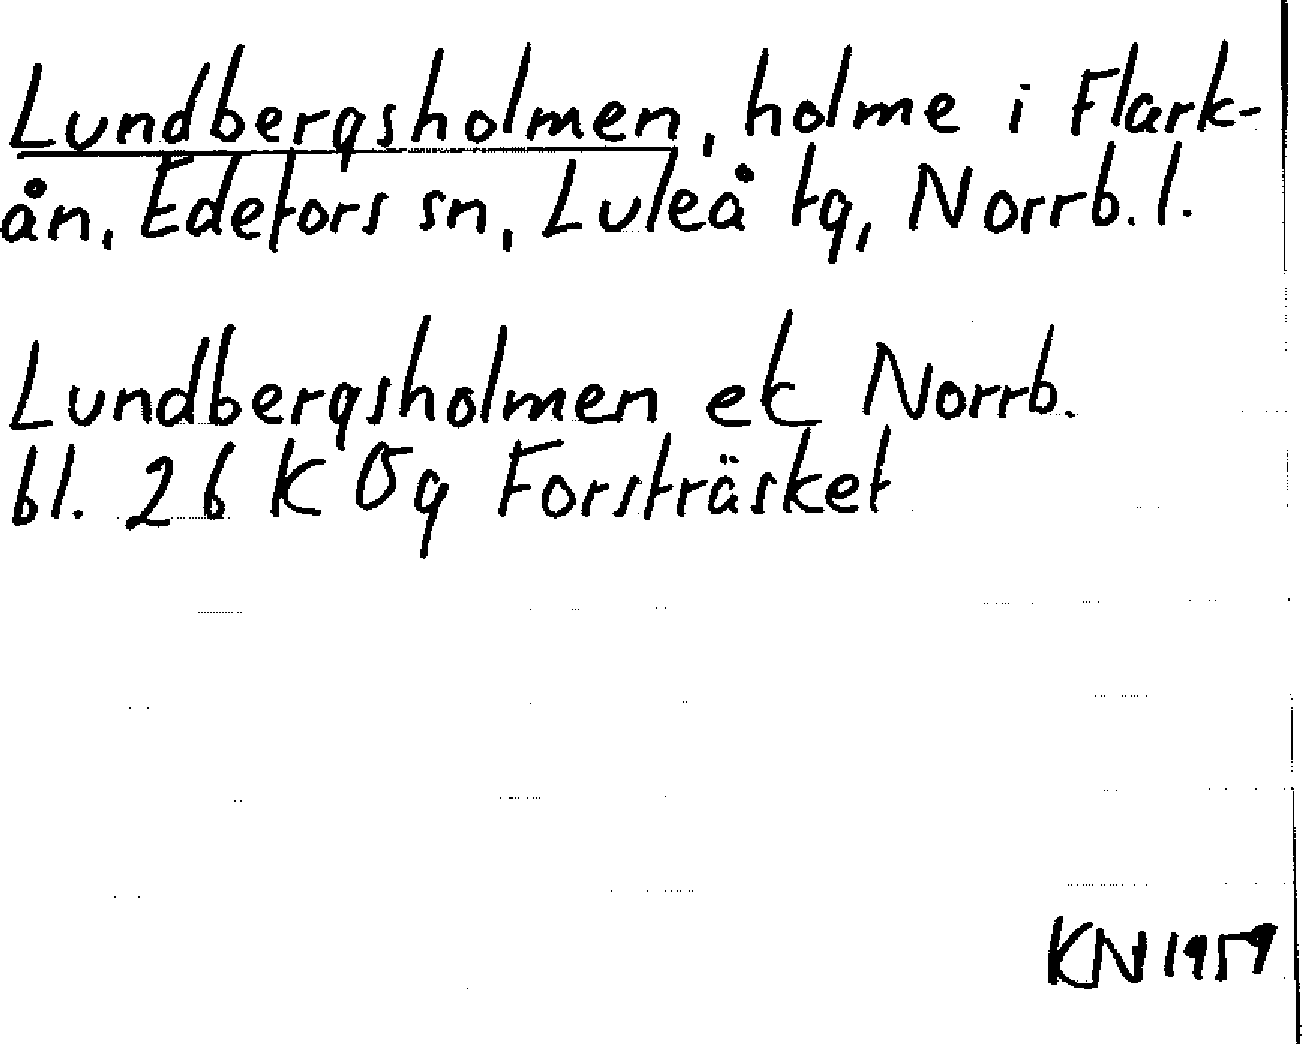 Lundbergsholmen, holme i Flark-
ån, Edefors sn, Luleå tg, Norrb. l.
Lundbergsholmen ek Norrb.
bl. 26 K Ög Forsträsket
KN 1959